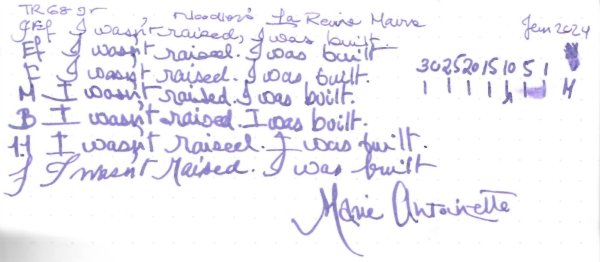 TR 68 gr Noodler's La Reine Mauve Jan 2024
EEF I wasn't raised, I was built.
EF I wasn't raised. I was built
F I wasn't raised. I was built.
M I wasn't raised. I was built.
B I wasn't raised. I was built.
1.1 I wasn't raised. I was built.
J I wasn't raised. I was built
30 25 20 15 10 5 1
M
Marie Antoinette